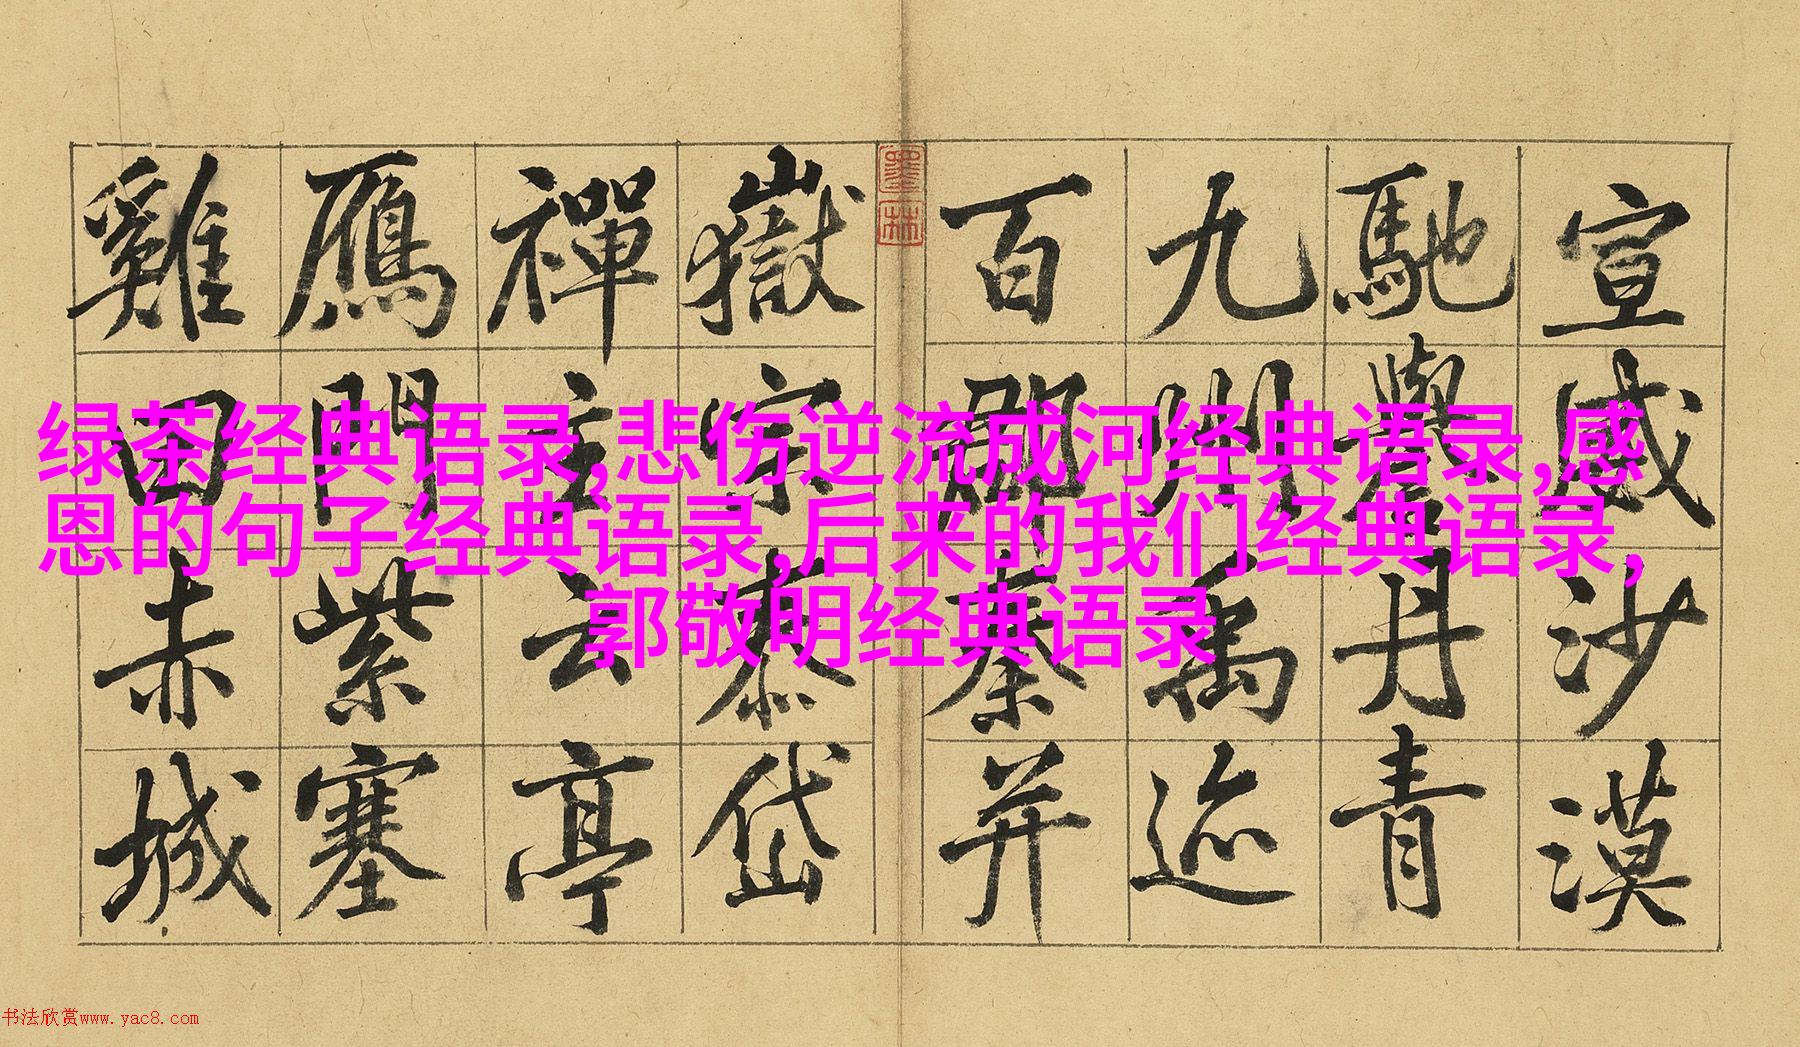 宣威沙漠
馳譽丹青
九州禹迹
百郡秦并
墨林
嶽宗泰岱
禪主云亭
鴈門紫塞
雞田赤城
绿茶经典语录,悲伤逆流成河经典语录,感
恩的句子经典语录,后来的我们经典语录,
郭敬明经典语录
书法欣赏www.yac8.com